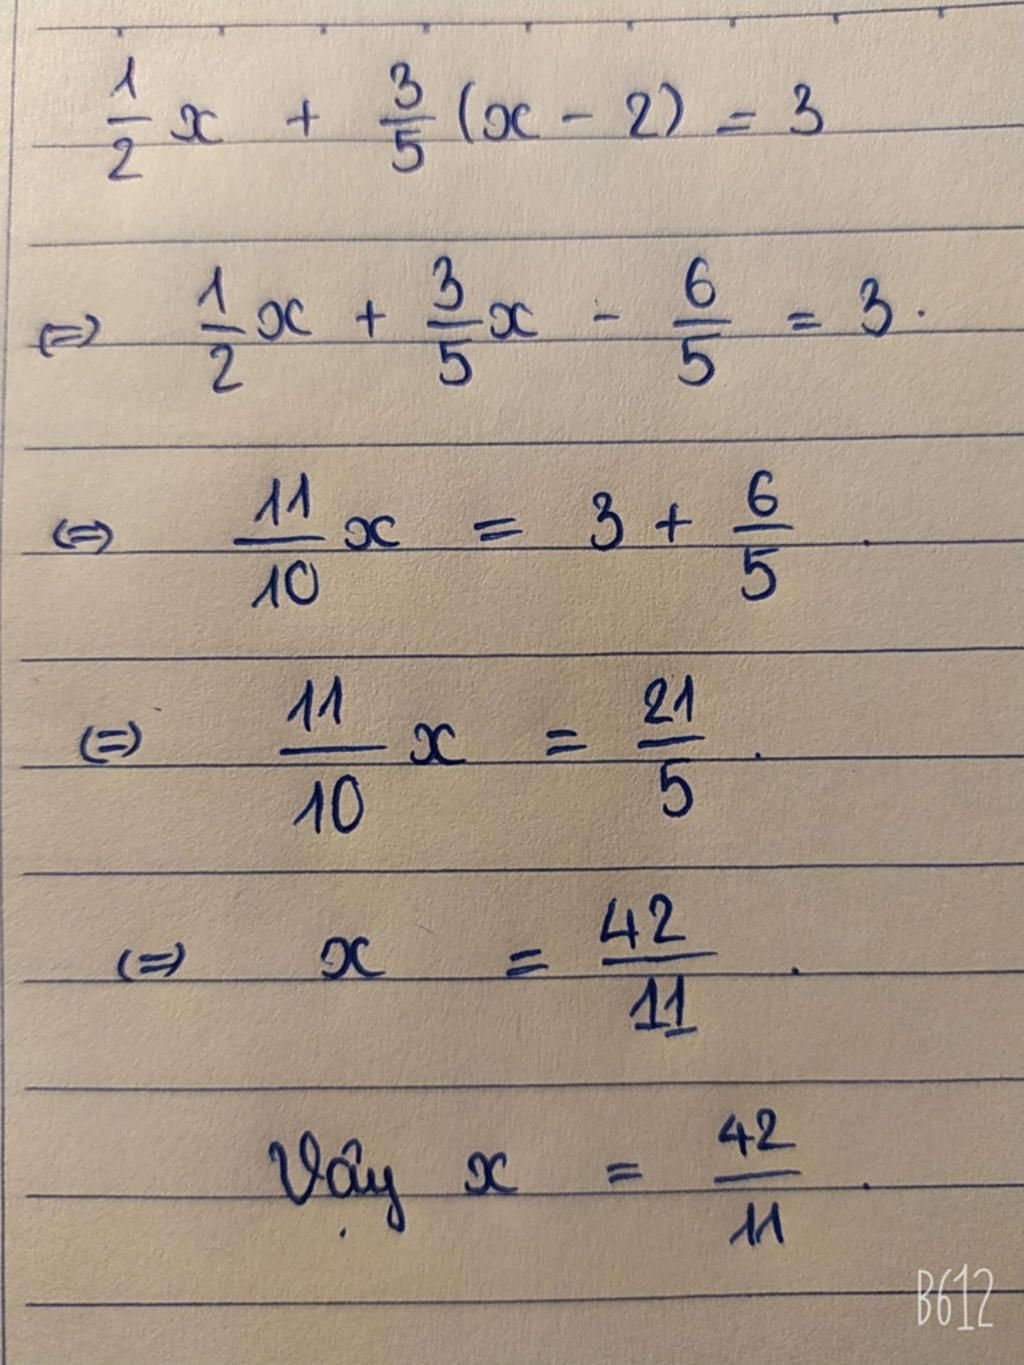 1/2 x + 3/5 (x - 2) = 3
(=) 1/2 x + 3/5 x - 6/5 = 3.
(=) 11/10 x = 3 + 6/5.
(=) 11/10 x = 21/5.
(=) x = 42/11.
Vậy x = 42/11.
B612